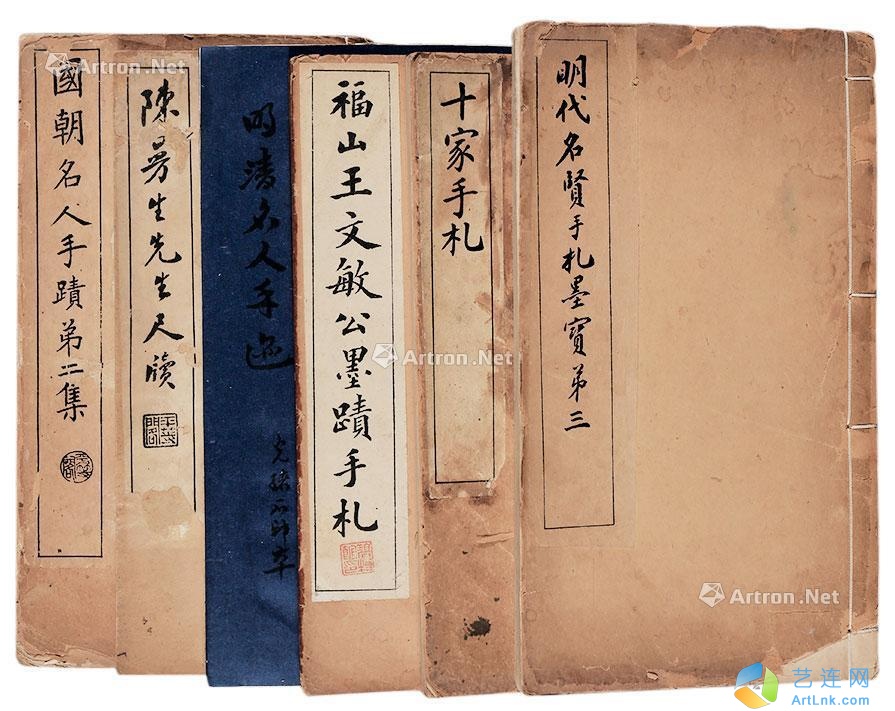 明代名賢手札墨寶第三
十家手札
福山王文敏公墨蹟手札
明清名人手迹
陳昜生先生尺牘
國朝名人手蹟第二集
Artron.Net
Artron.Net
Artron.Net
艺连网
ArtLnk.com